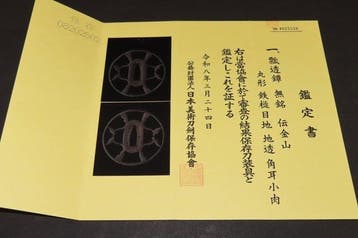 鑑定書
一、瓢透鐔 無銘 伝金山
丸形 鉄槌目地 地透 角耳小肉
右は当協會に於て審査の結果保存刀装具と
鑑定しこれを証する
令和八年三月二十四日
公益財團法人 日本美術刀劍保存協會